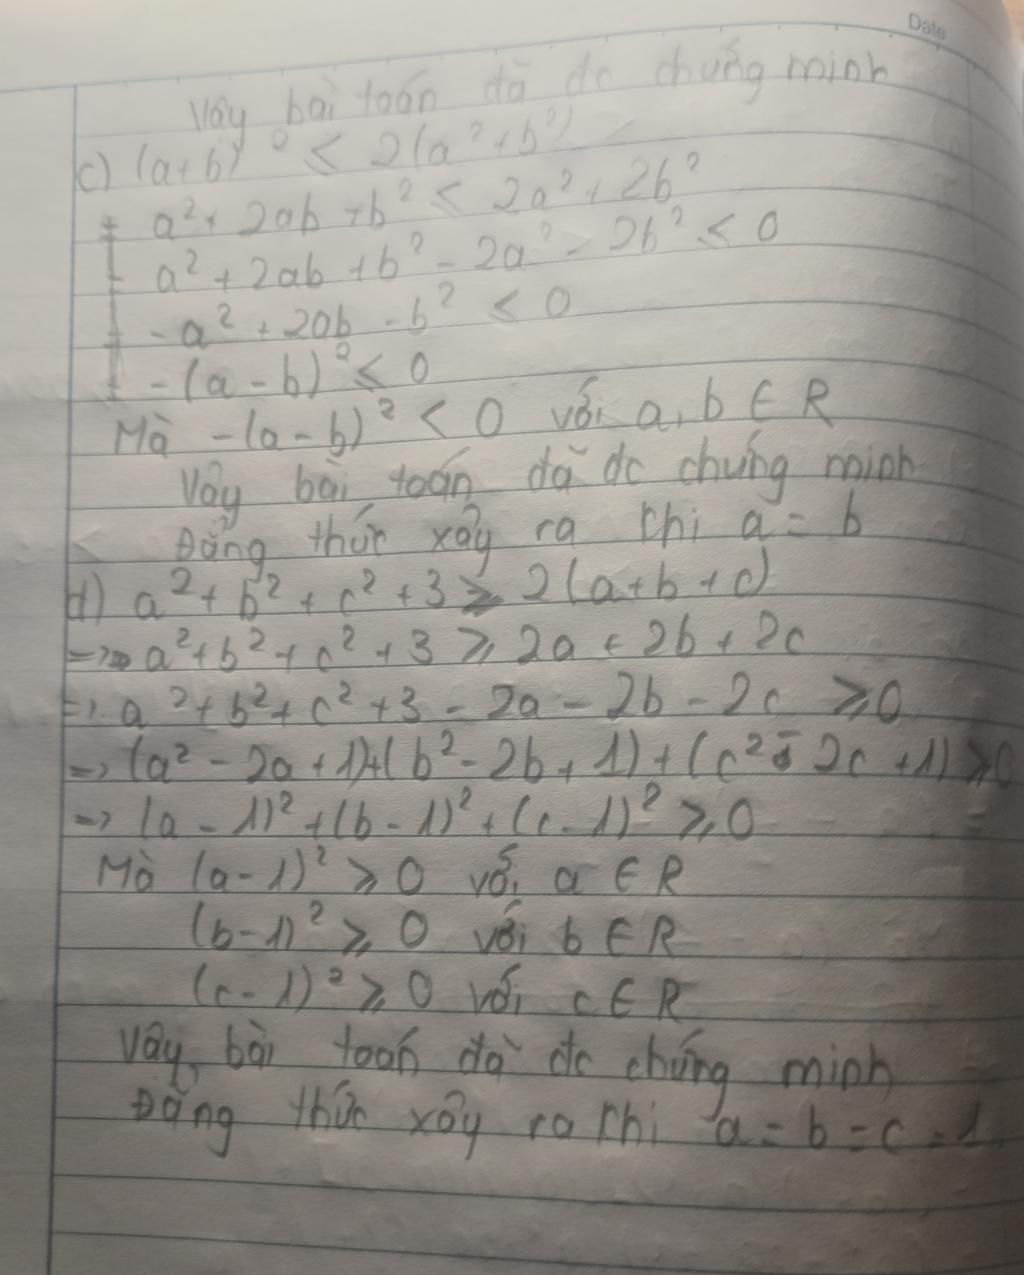 Date
Vậy bài toán đã đc chứng minh
c) (a+b)² ≤ 2(a²+b²)
a² + 2ab + b² ≤ 2a² + 2b²
a² + 2ab + b² - 2a² - 2b² ≤ 0
-a² + 2ab - b² ≤ 0
-(a-b)² ≤ 0
Mà -(a-b)² < 0 với a, b ∈ R
Vậy bài toán đã đc chứng minh
Đẳng thức xảy ra khi a = b
d) a² + b² + c² + 3 ≥ 2(a+b+c)
=> a² + b² + c² + 3 ≥ 2a + 2b + 2c
=> a² + b² + c² + 3 - 2a - 2b - 2c ≥ 0
=> (a² - 2a + 1) + (b² - 2b + 1) + (c² - 2c + 1) ≥ 0
=> (a - 1)² + (b - 1)² + (c - 1)² ≥ 0
Mà (a-1)² ≥ 0 với a ∈ R
(b-1)² ≥ 0 với b ∈ R
(c-1)² ≥ 0 với c ∈ R
Vậy bài toán đã đc chứng minh
Đẳng thức xảy ra khi a = b = c = 1